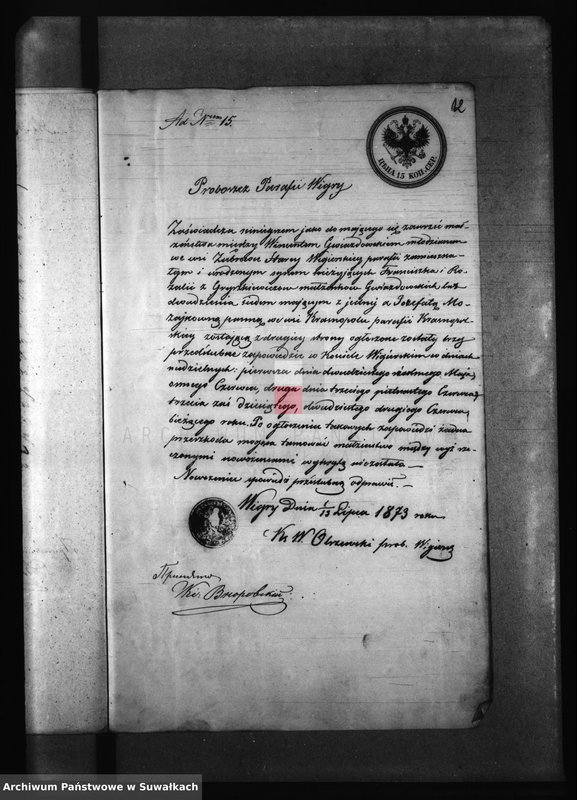 Ad Nrum 15.
12
ЦѢНА 15 КОП. СЕР.
Proboszcz Parafii Wigry
Zaświadcza niniejszem jako do mającego się zawrzeć mał-
żeństwa między Wincentem Gwiazdowskim młodzianem
we wsi Zubrówce Starej Wigierskiej parafii zamieszka-
łym i urodzonym synem nieżyjących Franciszka i Ro-
zalii z małżonków Gwiazdowskich lat
dwadzieścia siedem mającym z jednej a Józefatą Mo-
zajkowną panną we wsi Krasnopolu parafii Krasnopol-
skiej zostającą z drugiej strony ogłoszone zostały trzy
przedślubne zapowiedzie w Kościele Wigierskim w dniach
niedzielnych: pierwsza dnia dwudziestego siódmego Maja
ósmego Czerwca, druga dnia trzeciego piętnastego Czerwca
trzecia zaś dziesiątego, dwudziestego drugiego Czerwca
bieżącego roku. Po ogłoszeniu takowych zapowiedzi żadna
przeszkoda mogąca tamować małżeństwo między wyż rze-
czonymi nowożeńcami wykrytą nie została —
Nowożeńcy spowiedź przedślubną odprawili. —
Wigry Dnia 1/13 Lipca 1873 roku
Ks W Olszewski prob. Wigiersk
Archiwum Państwowe w Suwałkach